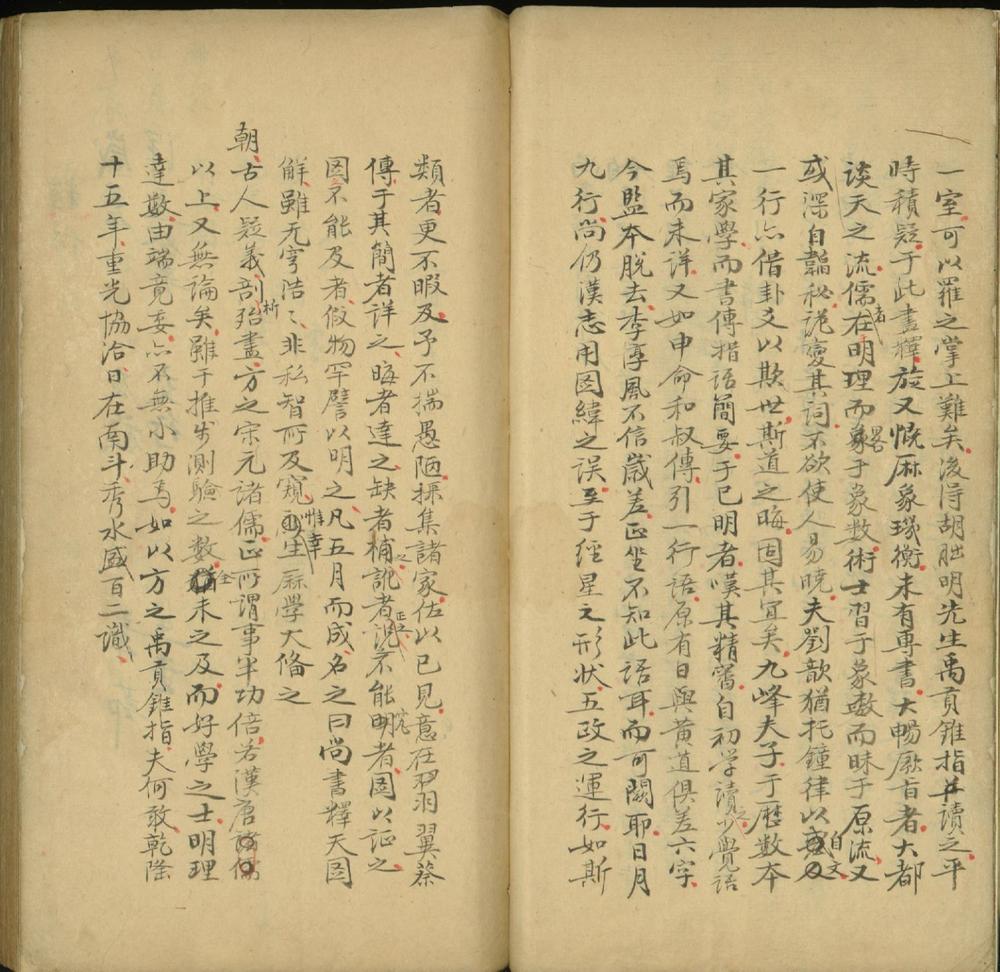 一室可以羅之掌上難矣後得胡朏明先生禹貢錐指讀之平
時積疑于此盡釋旋又慨厤象璣衡未有專書大暢厥旨者大都
談天之流儒者在明理而畧于象數術士習于象數而昧于原流又
或深自韜秘詭變其詞不欲使人易曉夫劉歆猶托鐘律以自文
一行亦借卦爻以欺世斯道之晦固其冝矣九峰夫子于歷數本
其家學而書傳措語簡要于已明者嘆其精審自初學讀之少覺語
焉而未詳又如申命和叔傳引一行語原有日與黃道俱差六字
今監本脫去李淳風不信歲差正坐不知此語耳而可闕耶日月
九行尚仍漢志用圖緯之误至于經星之形狀五政之運行如斯
類者更不暇及予不揣愚陋採集諸家佐以己見意在羽翼蔡
傳于其簡者詳之晦者達之缺者補之訛者正之不能明者圖以証之
圖不能及者假物罕譬以明之凡五月而成名之曰尚書釋天圖
解雖无穹浩〻非私智所及窺惟幸生厤學大俻之
朝古人疑義剖析殆盡方之宋元諸儒正所謂事半功倍若漢唐諸儒
以上又無論矣雖于推步測驗之数全未之及而好學之士明理
達數由端竟委亦不無小助焉如以方之禹貢錐指夫何敢乾隆
十五年重光協洽日在南斗秀水盛百二識